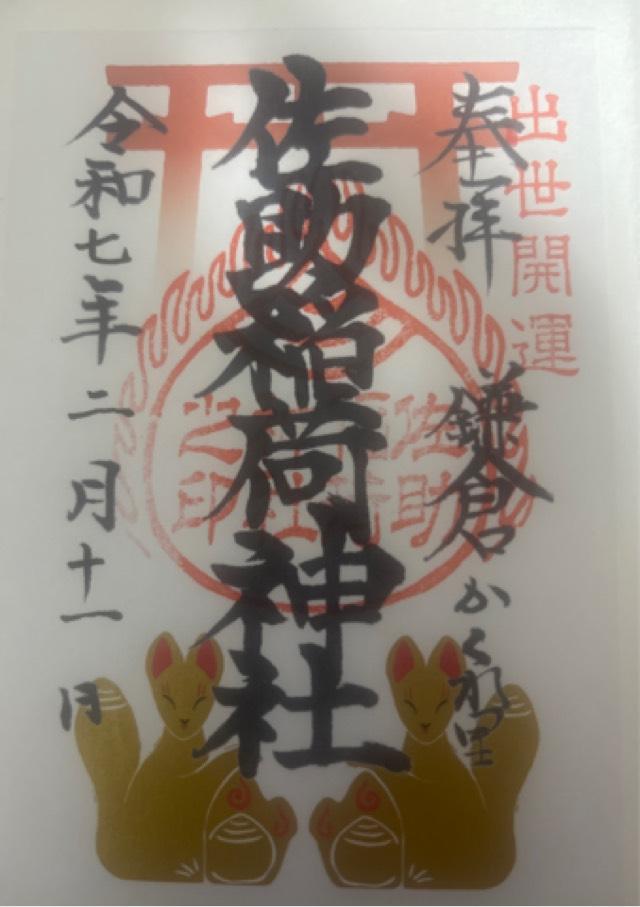 出世開運
奉拝
鎌倉かくれ里
佐助稲荷神社
佐助稲荷神社之印
令和七年二月十一日